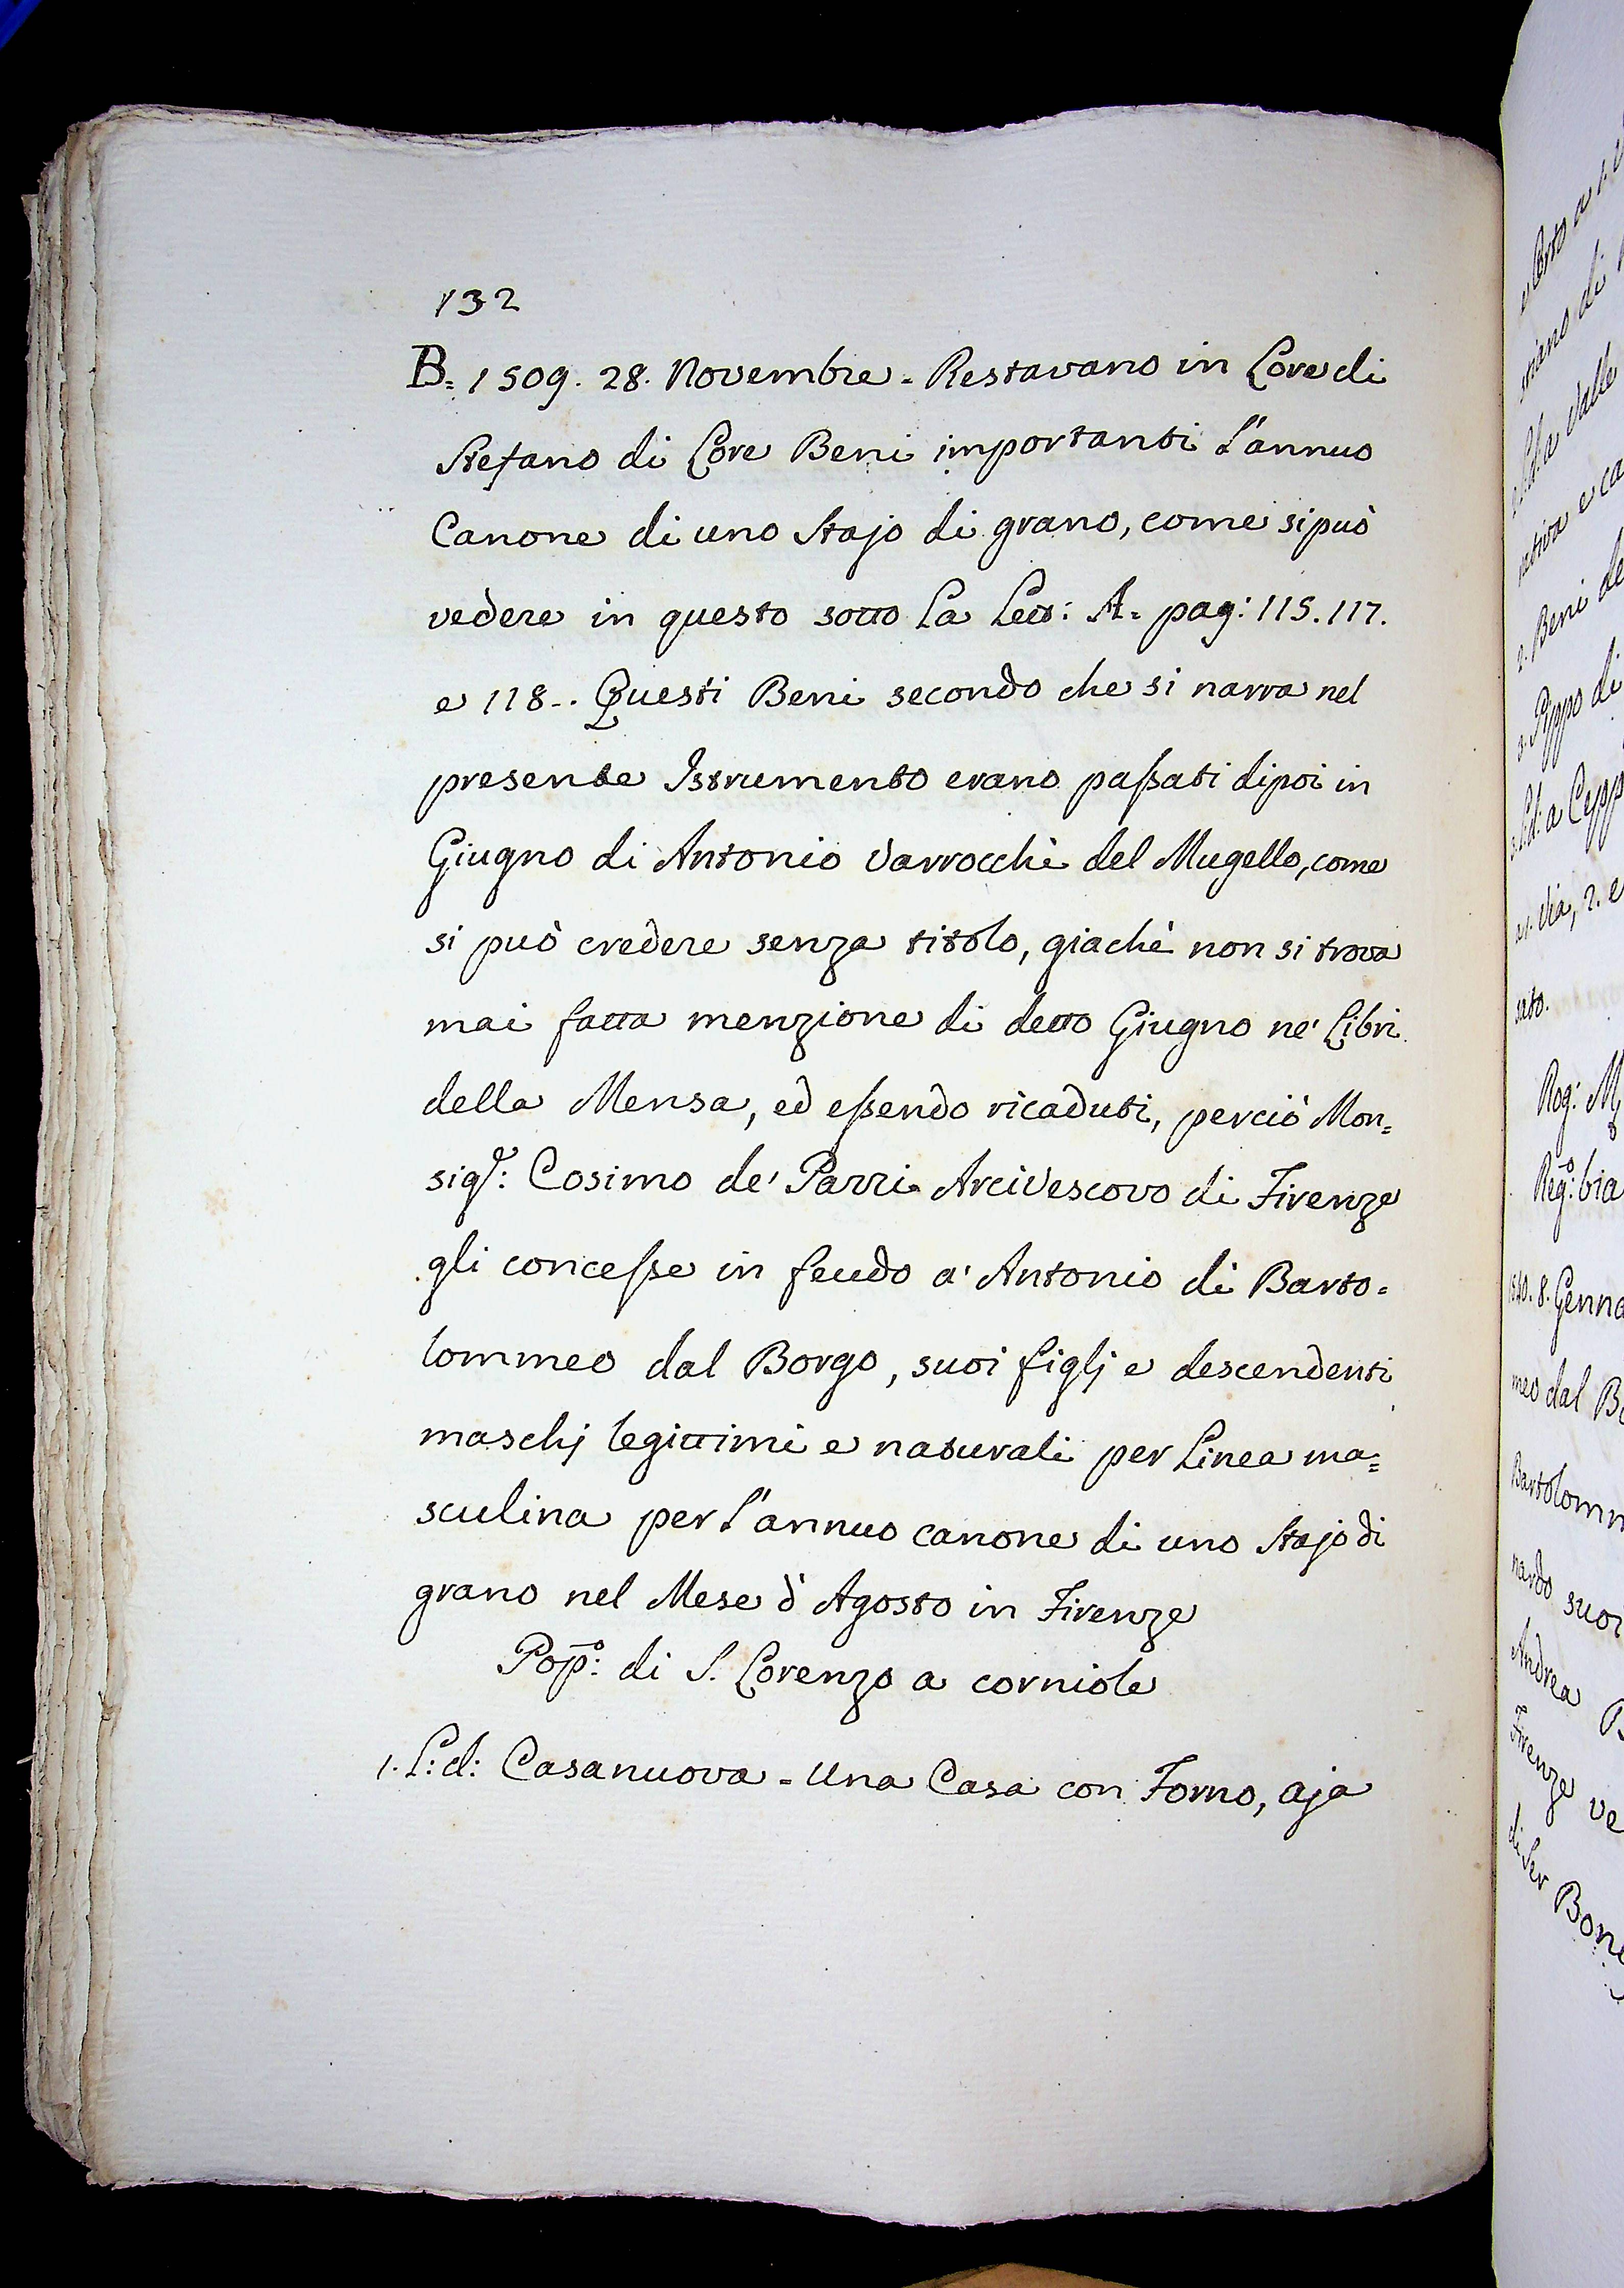 132
B= 1509. 28. Novembre. Restavano in Lore di
Stefano di Lore Beni importanti l'annuo
Canone di uno Stajo di grano, come si può
vedere in questo sotto la Lett: A= pag: 115. 117.
e 118.. Questi Beni secondo che si narra nel
presente Istrumento erano paßati dipoi in
Giugno di Antonio Varrocchi del Mugello, come
si può credere senza titolo, giachè non si trova
mai fatta menzione di detto Giugno ne' Libri
della Mensa, ed eßendo ricaduti, perciò Mon=
sigr: Cosimo de' Pazzi Arcivescovo di Firenze
gli conceße in feudo a' Antonio di Barto=
lommeo dal Borgo, suoi figlj e descendenti
maschj legittimi e naturali per Linea ma=
sculina per l'annuo canone di uno Stajo di
grano nel Mese d'Agosto in Firenze
Popo: di S. Lorenzo a corniole
1. L: d: Casanuova = Una Casa con Forno, aja
e Orto a 1.
2. Beni de
3. Pippo di
a 1. Via, 2. e
sato.
Rog: M
Rego: bia
1540. 8. Genna
meo dal Bo
Bartolomm
nardo suoi
Andrea B
Firenze ve
di Ser Bone